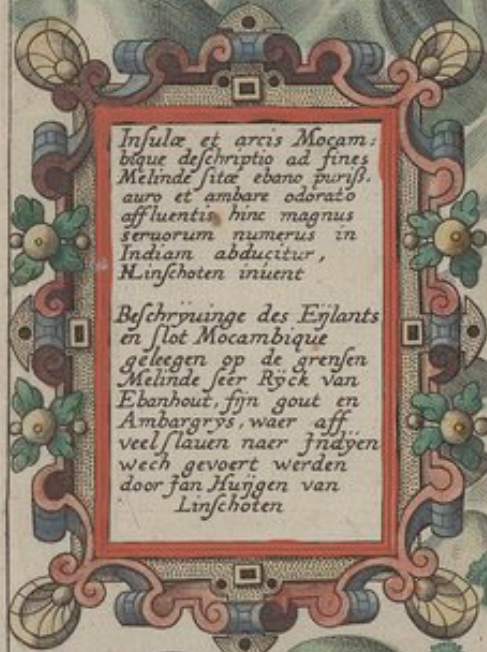 Inſulæ et arcis Mocam:
bique deſchriptio ad fines
Melinde ſitæ ebano puriß.
auro et ambare odorato
affluentis, hinc magnus
seruorum numerus in
Indiam abducitur,
H.Linſchoten inuent
Beſchrÿuinge des Eÿlants
en ſlot Mocambique
geleegen op de grenſen
Melinde ſeer Rÿck van
Ebanhout, fÿn gout en
Ambargrÿs, waer aff
veel ſlauen naer Indÿen
wech gevoert werden
door Jan Huÿgen van
Linſchoten